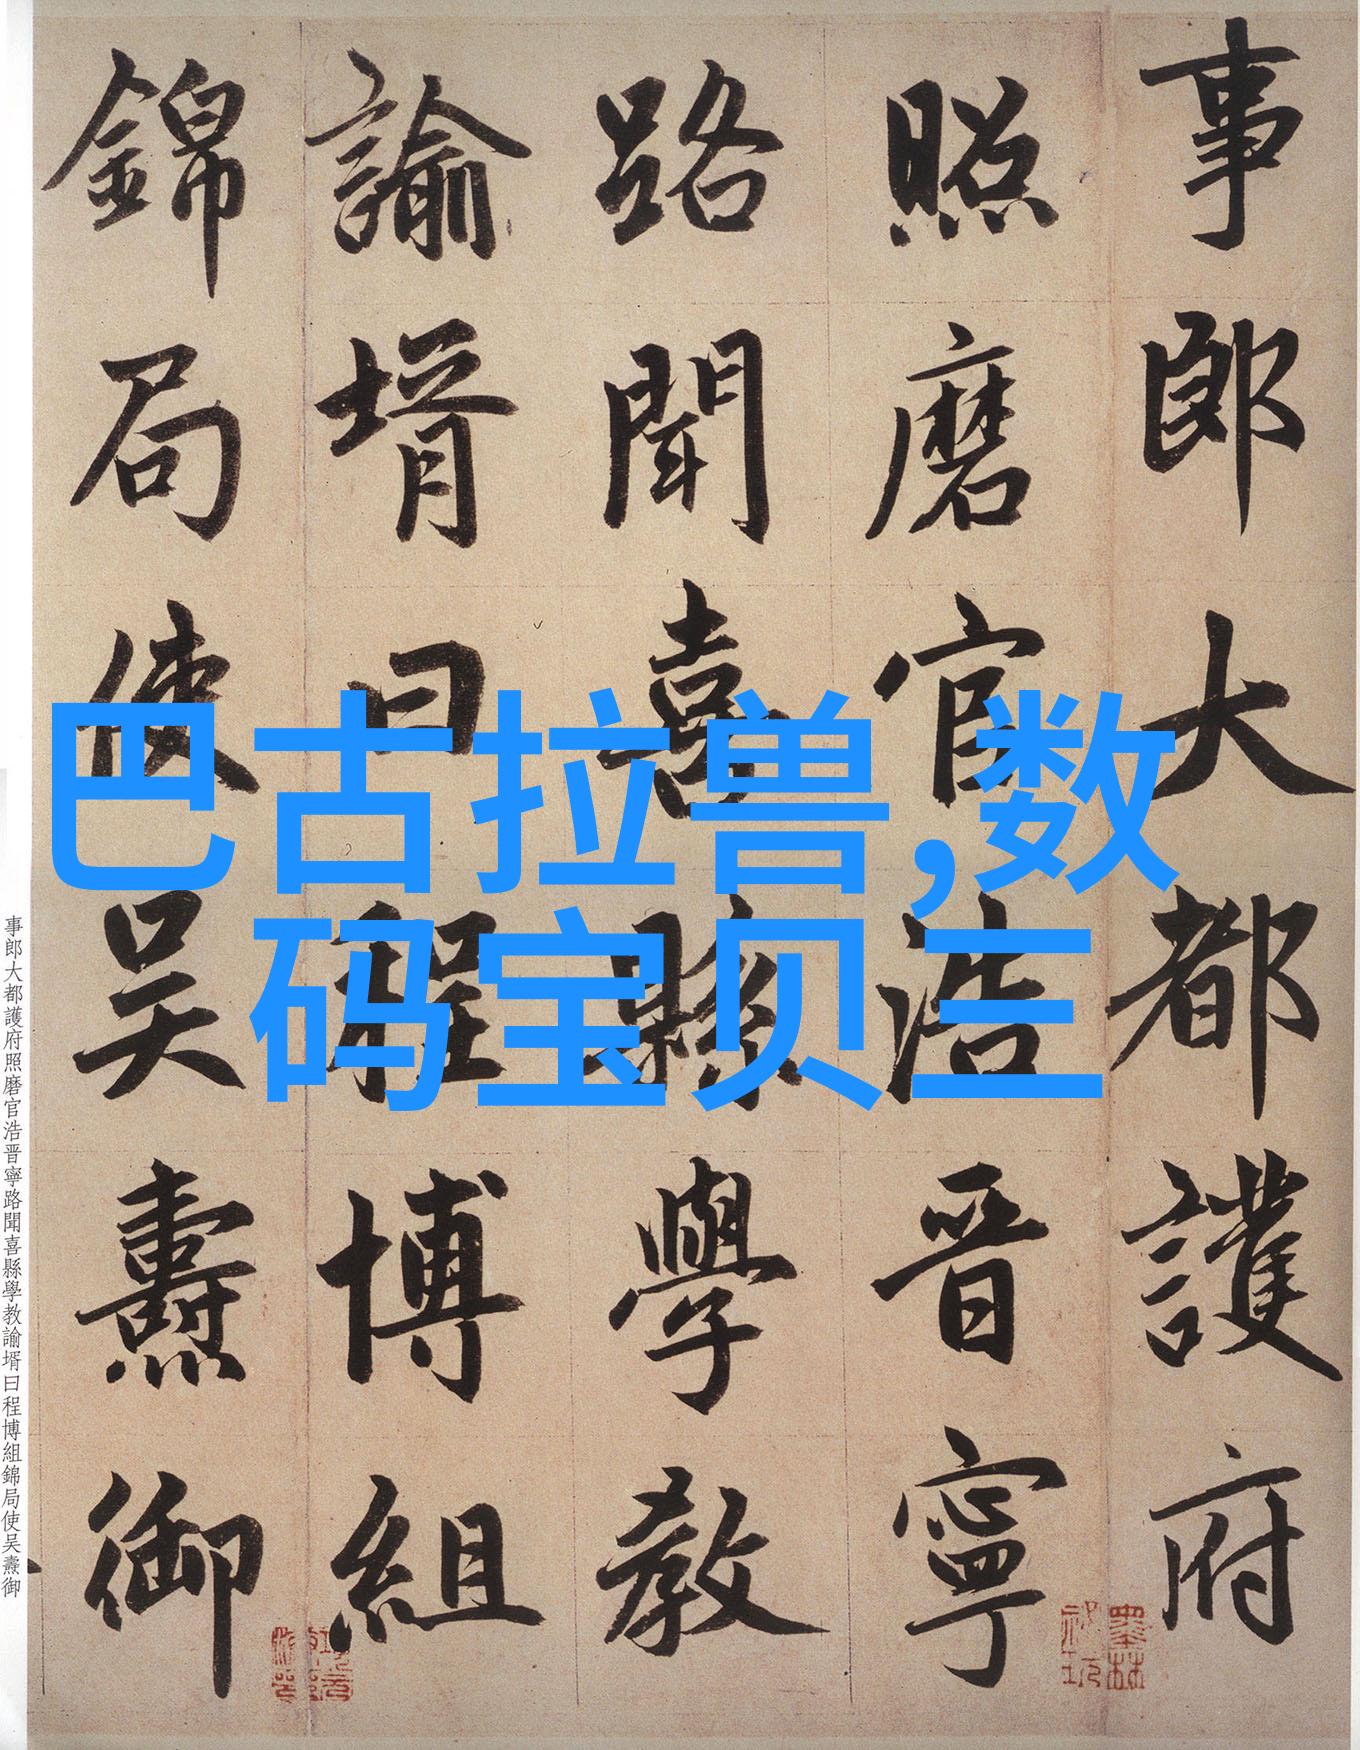 事郎大都護府
照磨官浩晋寧
路聞喜縣學教
諭壻曰程博組
錦局使吴燾御
巴古拉兽,数
码宝贝三
事郎大都護府照磨官浩晋寧路聞喜縣學教諭壻曰程博組錦局使吴燾御